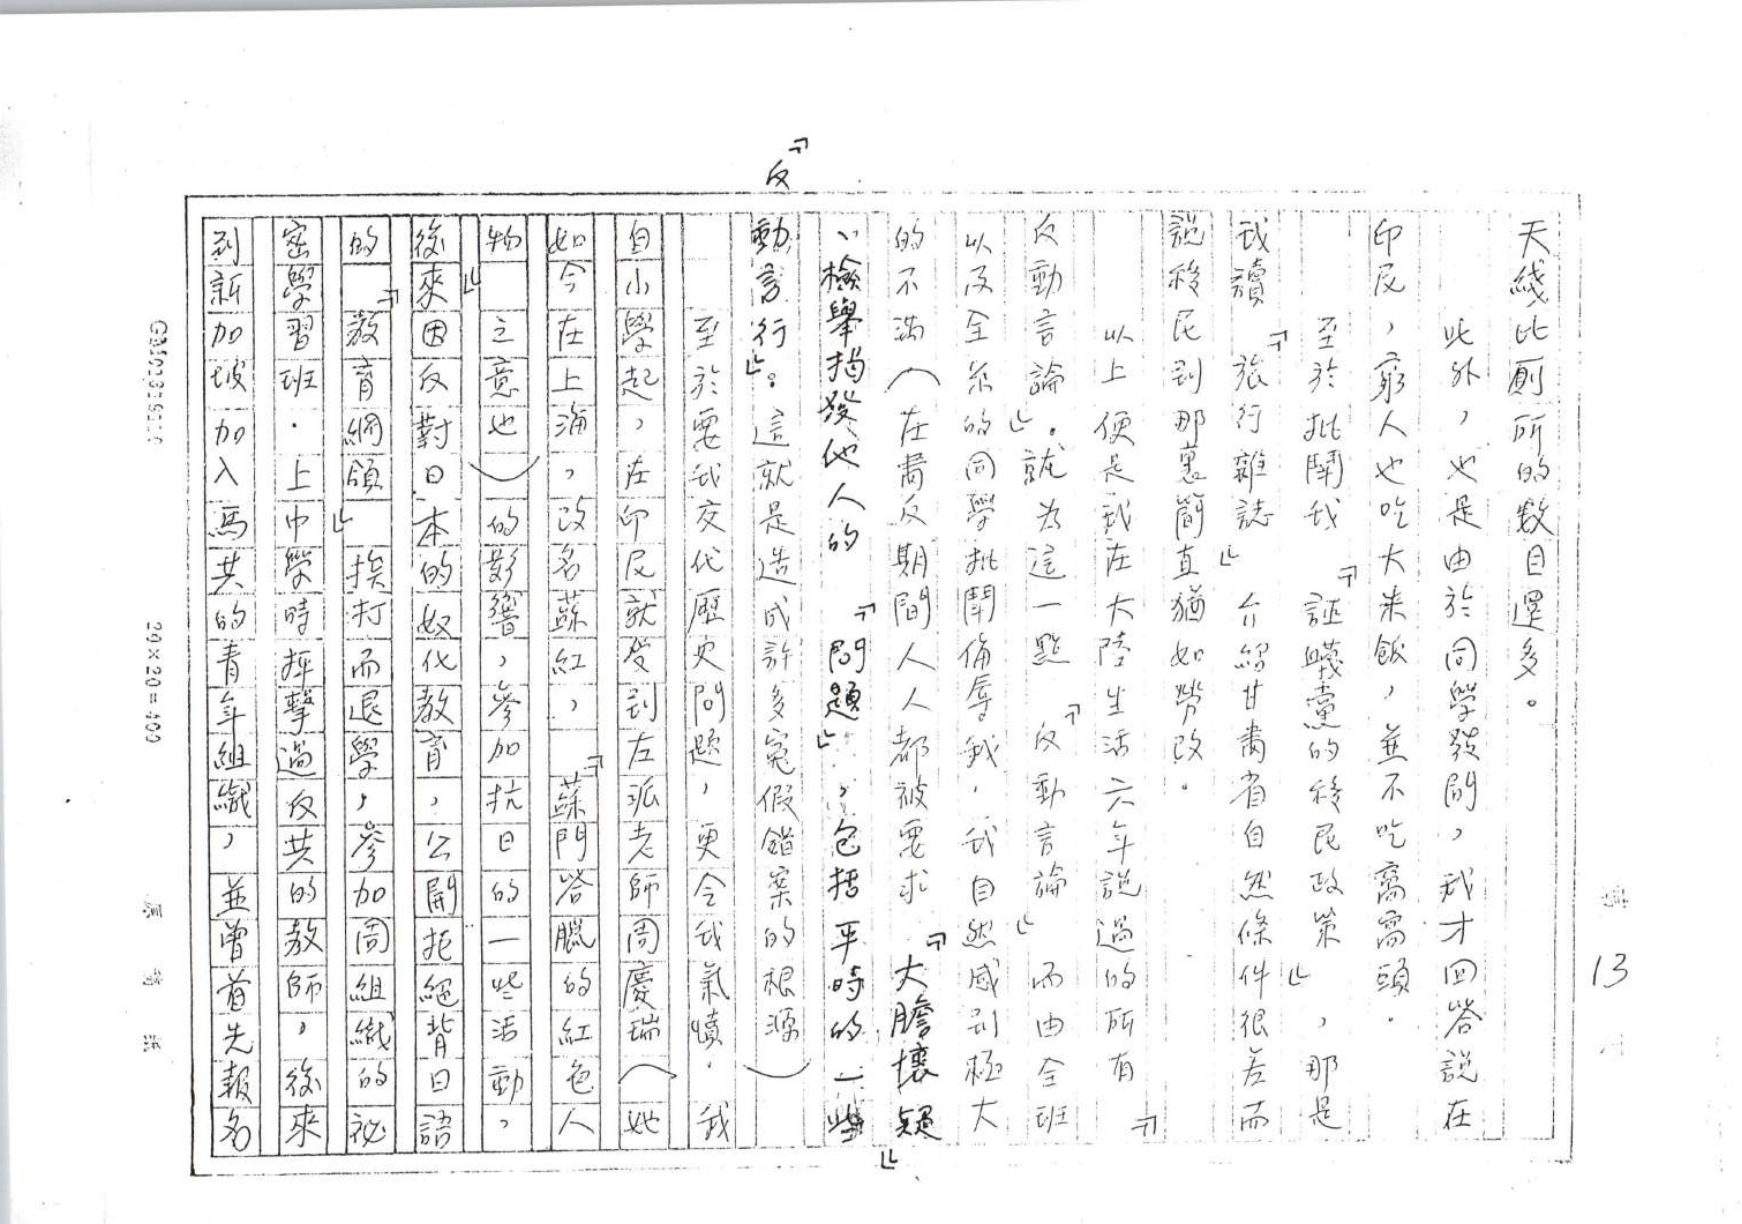 13
天綫比厠所的數目還多。
此外，也是由於同學發問，我才回答說在
印尼，窮人也吃大米飯，並不吃窩窩頭．
至於批鬥我『誣衊黨的移民政策』，那是
我讀『旅行雜誌』介紹甘肅省自然條件很差而
說移民到那裏簡直猶如勞改．
以上便是我在大陸生活六年說過的所有『
反動言論』．就為這一點『反動言論』而由全班
以及全系的同學批鬥侮辱我，我自然感到極大
的不滿（在肅反期間人人都被要求『大膽懷疑』
、檢舉揭發他人的『問題』，包括平時的一些『反
動言行』。這就是造成許多冤假錯案的根源）
至於要我交代歷史問題，更令我氣憤．我
自小學起，在印尼就受到左派老師周慶瑞（她
如今在上海，改名蘇紅，『蘇門答臘的紅色人
物』之意也）的影響，參加抗日的一些活動，
後來因反對日本的奴化教育，公開拒絕背日語
的『教育綱領』挨打而退學，參加周組織的祕
密學習班．上中學時抨擊過反共的教師，後來
到新加坡加入馬共的青年組織，並曾首先報名
20×20=400
稿紙